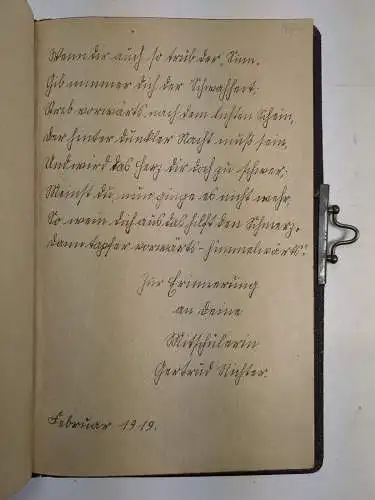 Wenn dir auch so trüb der Sinn.
Gib nimmer dich der Schwachheit.
Streb vorwärts nach dem lichten Schein,
Der hinter dunkler Nacht muß sein,
Und wird das Herz dir doch zu schwer;
Meinst du, nun ginge es nicht mehr,
So wein dich aus das hilft den Schmerz.
dann tapfer vorwärts - himmelwärts!
Zur Erinnerung
an deine
Mitschülerin
Gertrud Richter.
Februar 1919.